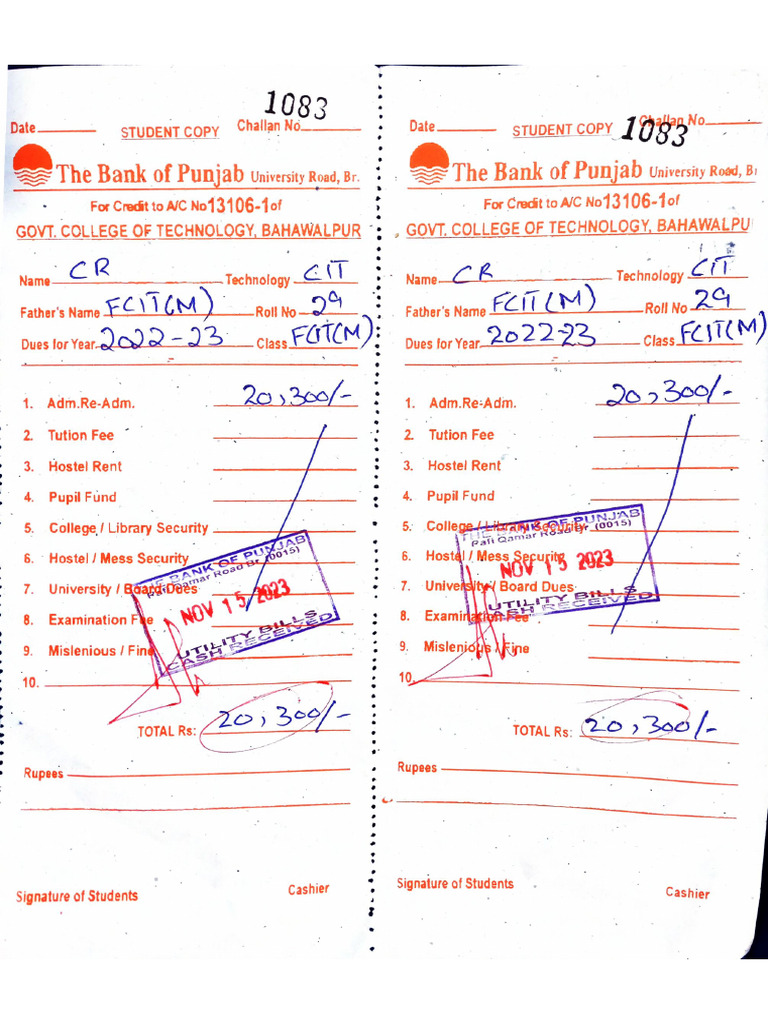 1083
Date STUDENT COPY Challan No
The Bank of Punjab University Road, Br.
For Credit to A/C No 13106-1 of
GOVT. COLLEGE OF TECHNOLOGY, BAHAWALPUR
Name CR Technology CIT
Father's Name FCIT(M) Roll No 29
Dues for Year 2022-23 Class FCIT(M)
1. Adm.Re-Adm. 20,300/-
2. Tution Fee
3. Hostel Rent
4. Pupil Fund
5. College / Library Security
6. Hostel / Mess Security
7. University / Board Dues
8. Examination Fee
9. Mislenious / Fine
10.
THE BANK OF PUNJAB
Qamar Road Br. (0015)
NOV 15 2023
UTILITY BILLS
CASH RECEIVED
TOTAL Rs: 20,300/-
Rupees
Signature of Students Cashier
Date STUDENT COPY Challan No
1083
The Bank of Punjab University Road, Br
For Credit to A/C No 13106-1 of
GOVT. COLLEGE OF TECHNOLOGY, BAHAWALPU
Name CR Technology CIT
Father's Name FCIT(M) Roll No 29
Dues for Year 2022-23 Class FCIT(M)
1. Adm.Re-Adm. 20,300/-
2. Tution Fee
3. Hostel Rent
4. Pupil Fund
5. College / Library Security
6. Hostel / Mess Security
7. University / Board Dues
8. Examination Fee
9. Mislenious / Fine
10.
THE BANK OF PUNJAB
Qamar Road Br. (0015)
NOV 15 2023
UTILITY BILLS
CASH RECEIVED
TOTAL Rs: 20,300/-
Rupees
Signature of Students Cashier